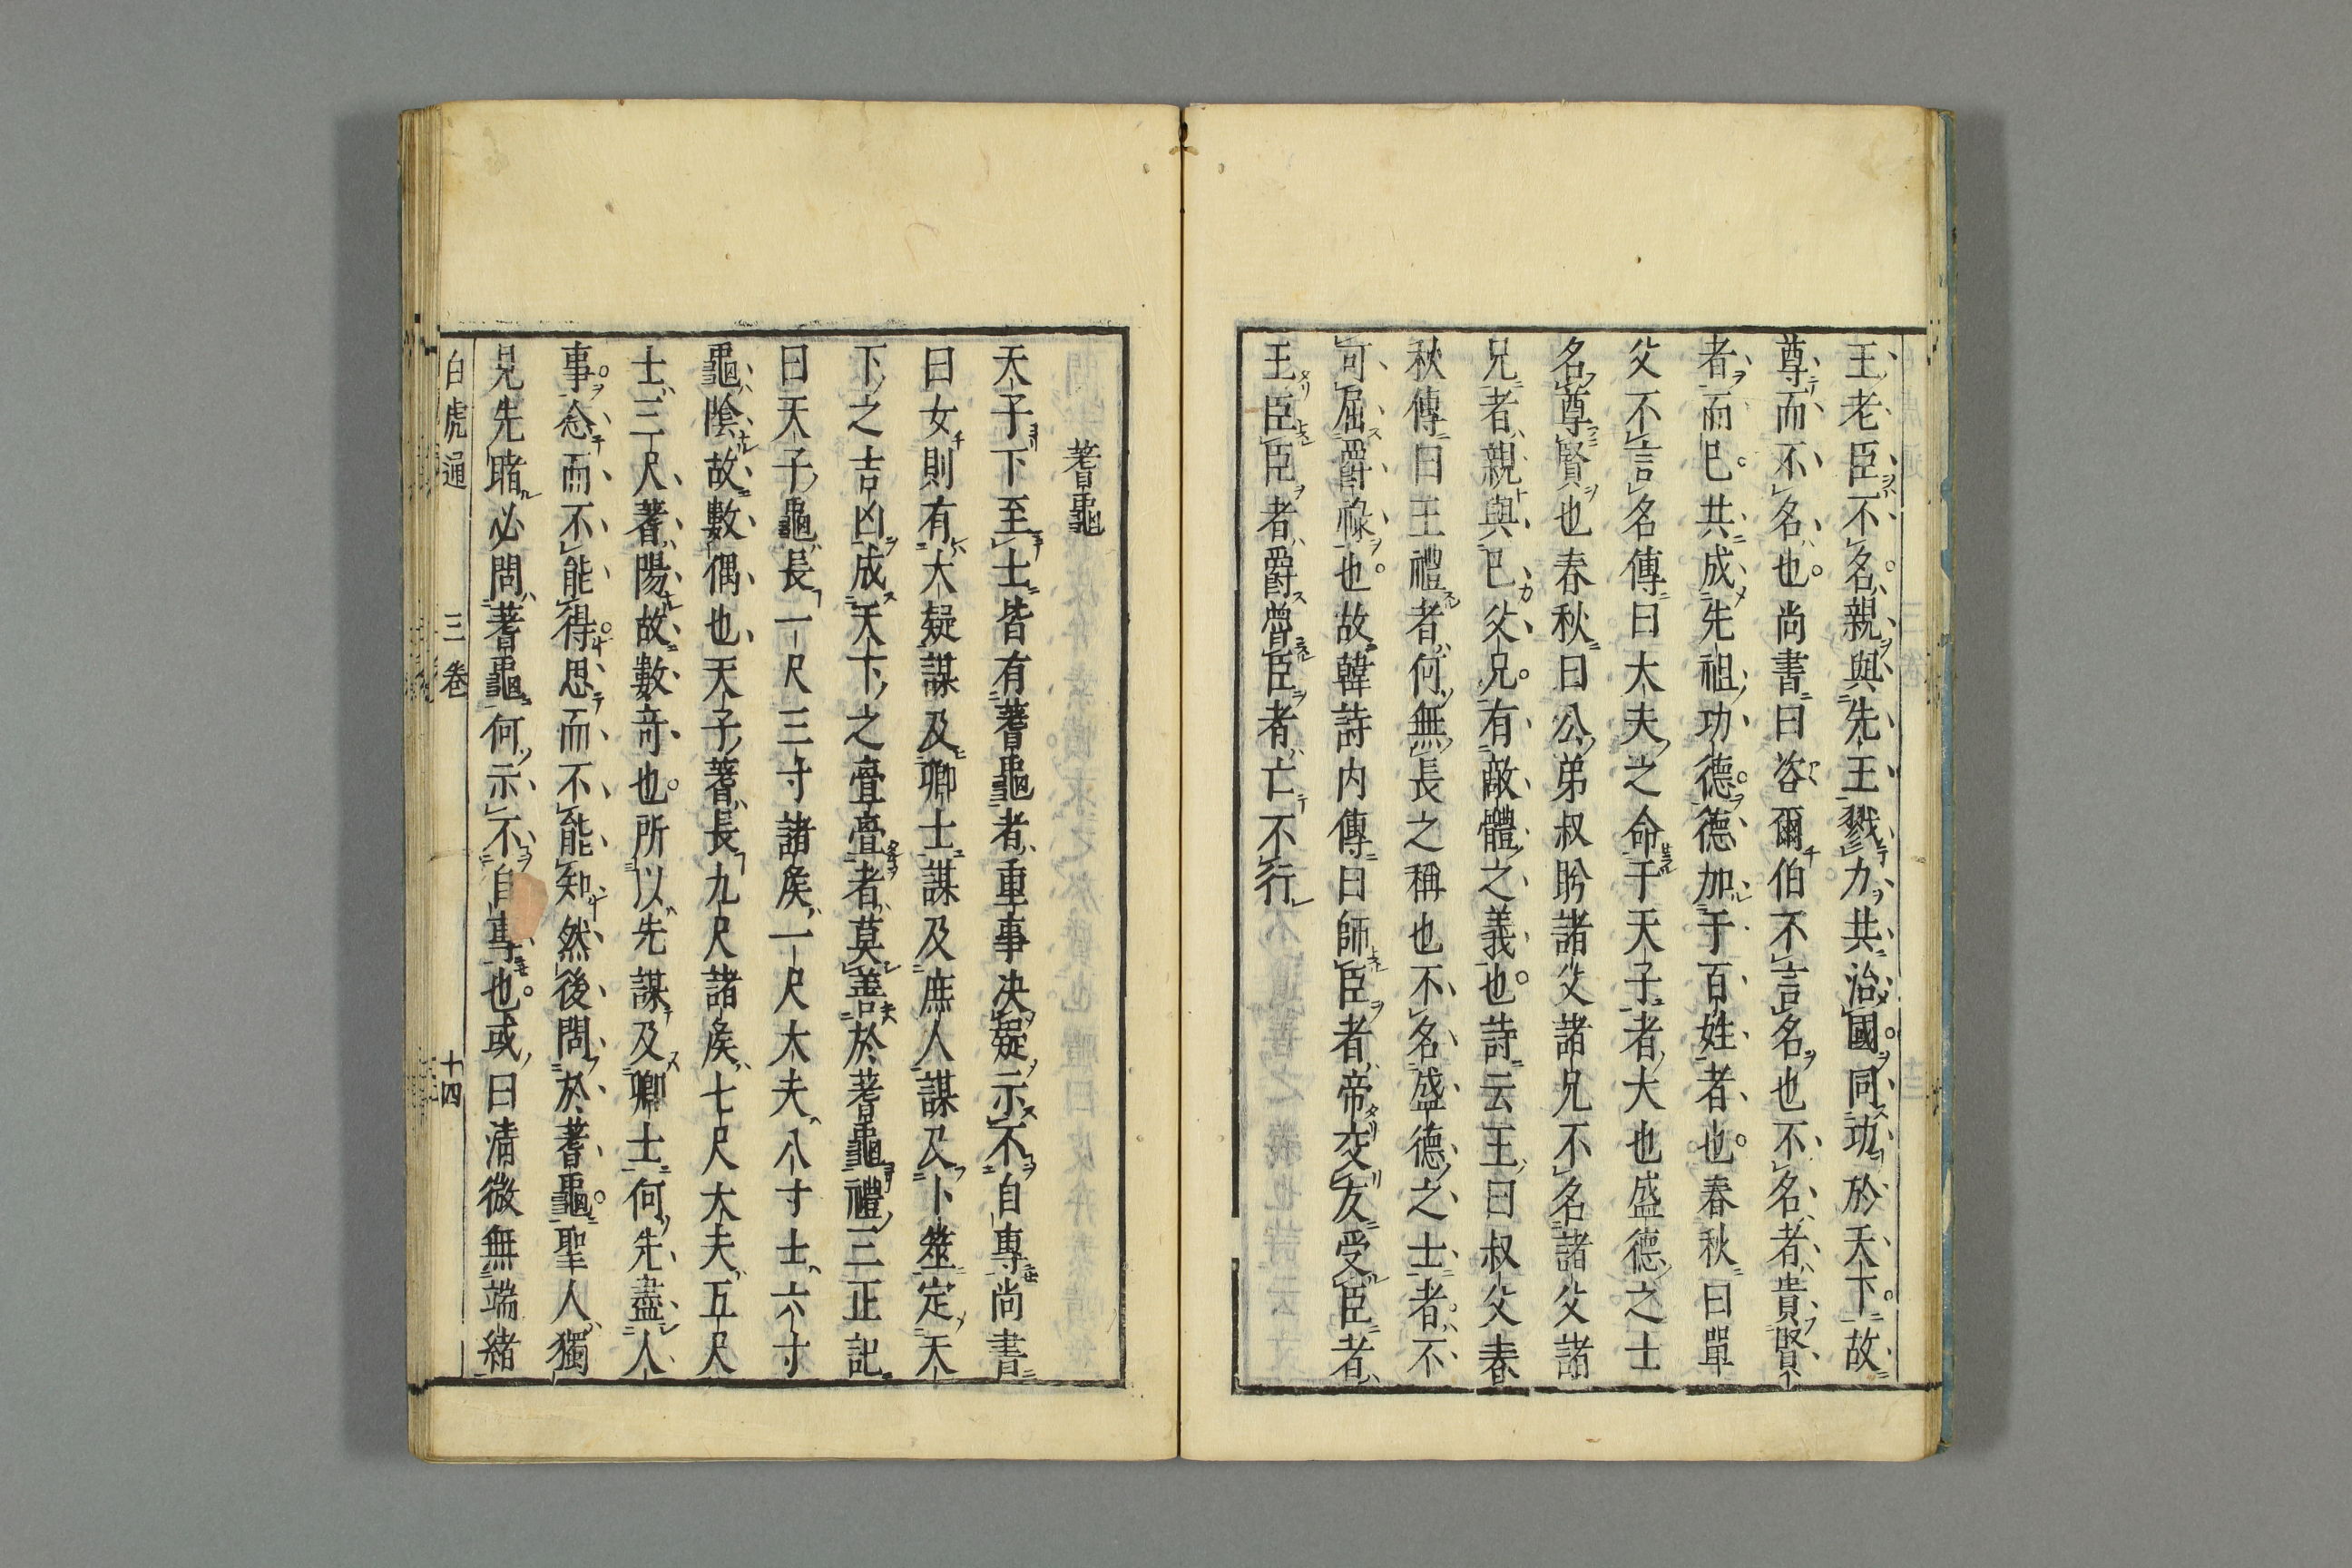 王老臣不名親與先王戮力共治國同功於天下故
尊而不名也尚書曰咨爾伯不言名也不名者貴賢
者而已共成先祖功德德加于百姓者也春秋曰單
父不言名傳曰大夫之命于天子者大也盛德之士
名尊賢也春秋曰公弟叔肸諸父諸兄不名諸父諸
兄者親與己父兄有敵體之義也詩云王曰叔父春
秋傳曰王禮者何無長之稱也不名盛德之士者不
可屈爵祿也故韓詩内傳曰師臣者帝交友受臣者
王臣臣者爵魯臣者亡不行
蓍龜
天子下至士皆有蓍龜者重事决疑示不自專尚書
曰女則有大疑謀及卿士謀及庶人謀及卜筮定天
下之吉凶成天下之亹亹者莫善於蓍龜禮三正記
曰天子龜長一尺三寸諸侯一尺大夫八寸士六寸
龜陰故數偶也天子蓍長九尺諸侯七尺大夫五尺
士三尺蓍陽故數竒也所以先謀及卿士何先盡人
事念而不能得思而不能知然後問於蓍龜聖人獨
見先睹必問蓍龜何示不自專也或曰清微無端緒
白虎通 三卷 十四